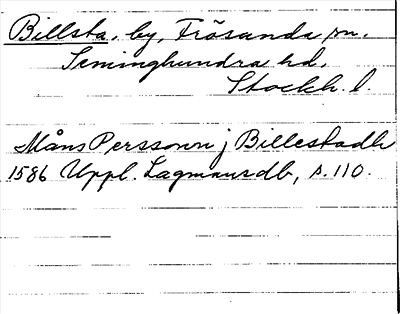 Billsta, by, Frösunda sn.
Seminghundra hd.
Stockh. l.
Måns Perssonn j Billestadh
1586 Uppl. Lagmansdb, s. 110.